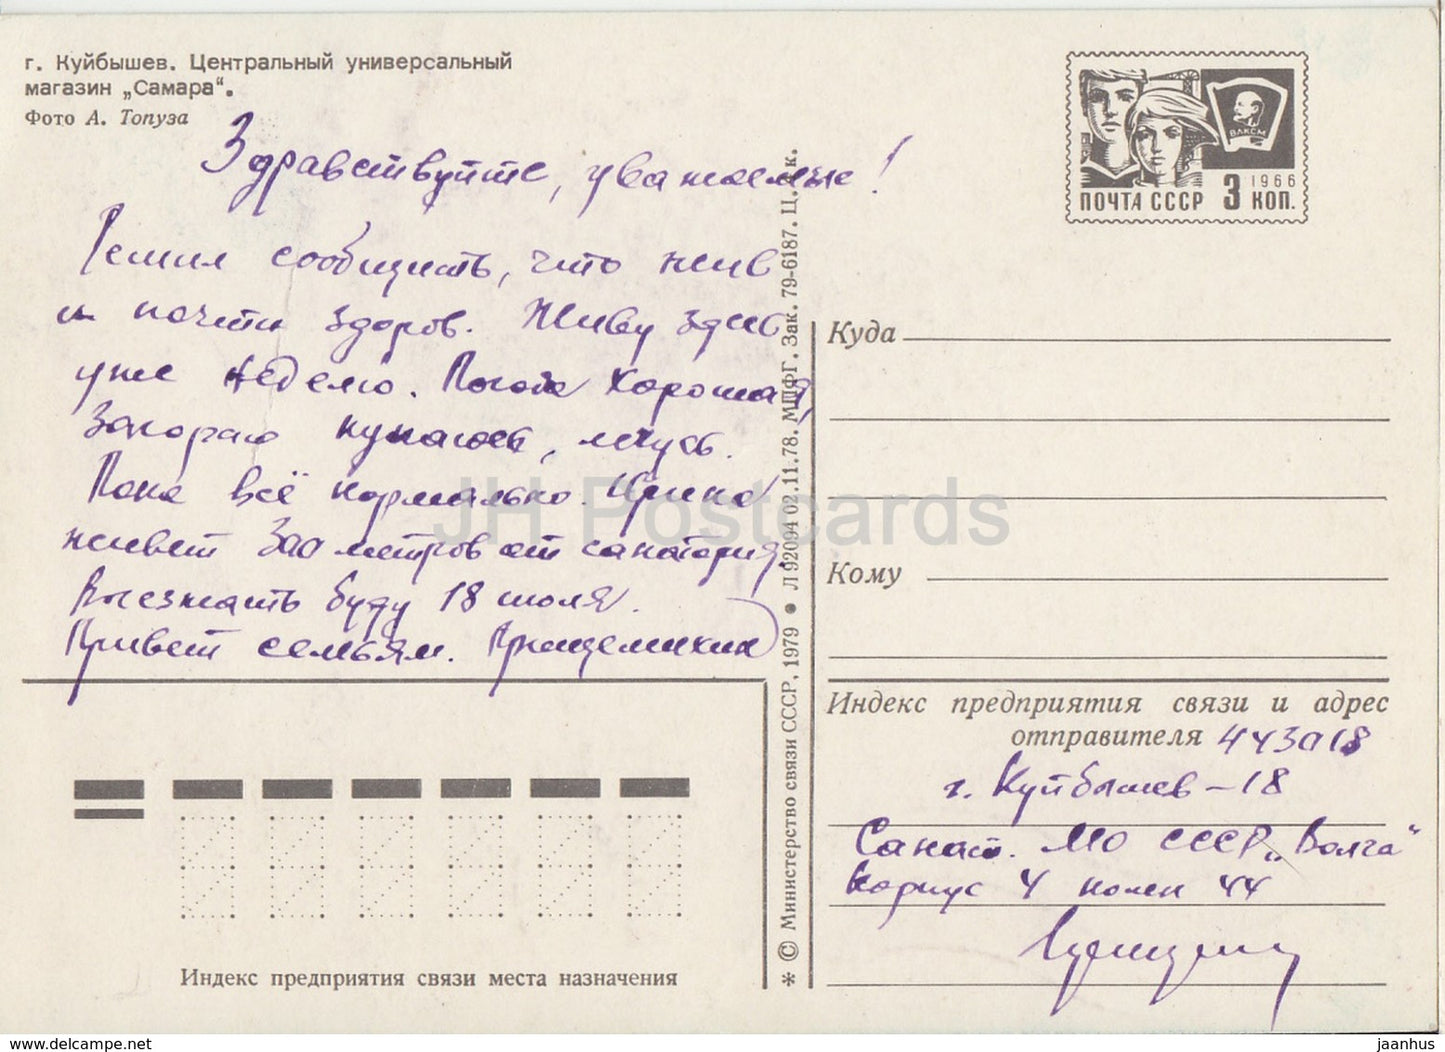 г. Куйбышев. Центральный универсальный
магазин „Самара“.
Фото А. Топуза
Здравствуйте, уважаемые!
Решил сообщить, что жив
и почти здоров. Живу здесь
уже неделю. Погода хорошая,
Загораю купаюсь, лечусь.
Пока всё нормально. Ирина
живет 300 метров от санатория.
Выезжать буду 18 июля.
Привет семьям.
Индекс предприятия связи места назначения
* © Министерство связи СССР, 1979 • Л 92094 02.11.78. МПФГ. Зак. 79-6187. Ц. 4 к.
ВЛКСМ
1966
ПОЧТА СССР 3 КОП.
Куда
Кому
Индекс предприятия связи и адрес
отправителя 443018
г. Куйбышев-18
Санат. МО СССР „Волга“
Корпус 4 комн 44
JH Postcards
www.delcampe.net
jaanhus